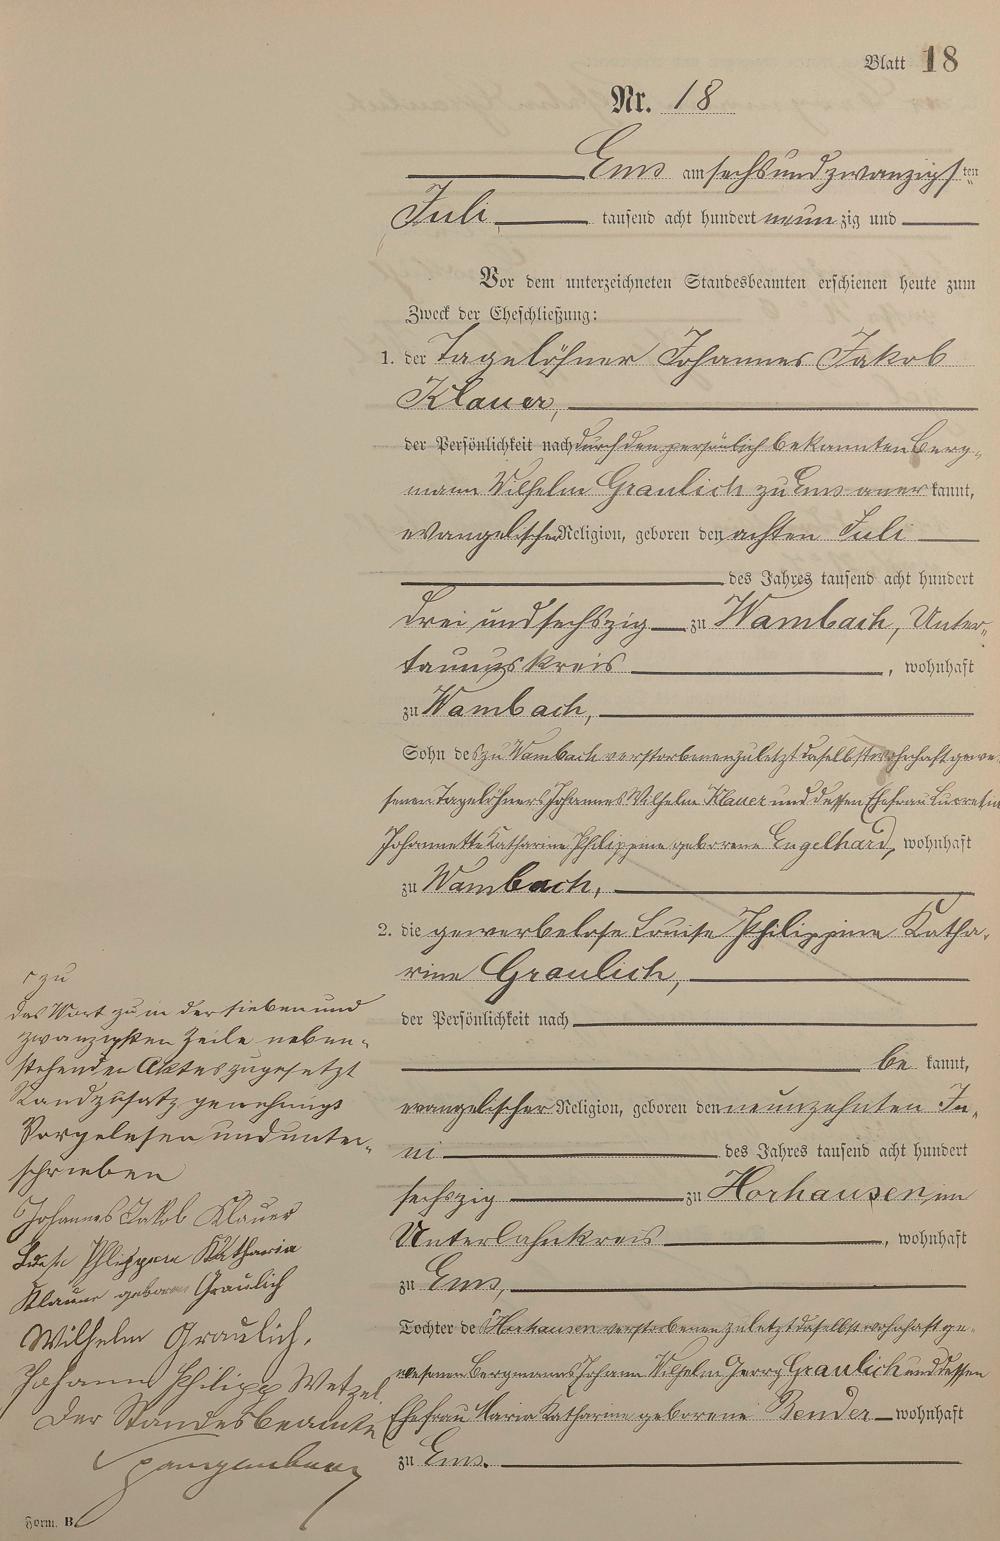 Blatt 18
Nr. 18
Ems am sechsundzwanzigsten
Juli tausend acht hundert neunzig und
Vor dem unterzeichneten Standesbeamten erschienen heute zum
Zweck der Eheschließung:
1. der Tagelöhner Johannes Jakob
Klauer,
der Persönlichkeit nach durch den persönlich bekannten Berg-
mann Wilhelm Graulich zu Ems anerkannt,
evangelischer Religion, geboren den achten Juli
des Jahres tausend acht hundert
drei und sechszig zu Wambach, Unter-
taunuskreis, wohnhaft
zu Wambach,
Sohn des zu Wambach verstorbenen zuletzt daselbst wohnhaft gewe-
senen Tagelöhners Johannes Wilhelm Klauer und dessen Ehefrau Lucretia
Johannette Katharine Philippine geborene Engelhard, wohnhaft
zu Wambach,
2. die gewerbelose Louise Philippine Katha-
rine Graulich,
der Persönlichkeit nach
be kannt,
evangelischer Religion, geboren den neunzehnten Ju-
ni des Jahres tausend acht hundert
sechszig zu Horhausen, im
Unterlahnkreis, wohnhaft
zu Ems,
Tochter des Horhausen verstorbenen zuletzt daselbst wohnhaft ge-
wesenen Bergmanns Johann Wilhelm Georg Graulich und dessen
Ehefrau Maria Katharine geborene Bender wohnhaft
zu Ems.
┌ zu
Das Wort zu in der sieben und
zwanzigsten Zeile neben-
stehenden Aktes zugesetzt
Randzusatz genehmigt
Vorgelesen und unter-
schrieben
Johannes Jakob Klauer
Luise Phlippen Katharia
Klauer geboren Graulich
Wilhelm Graulich.
Johann Philipp Wetzel
Der Standesbeamte
Spangenberg
Form. B.